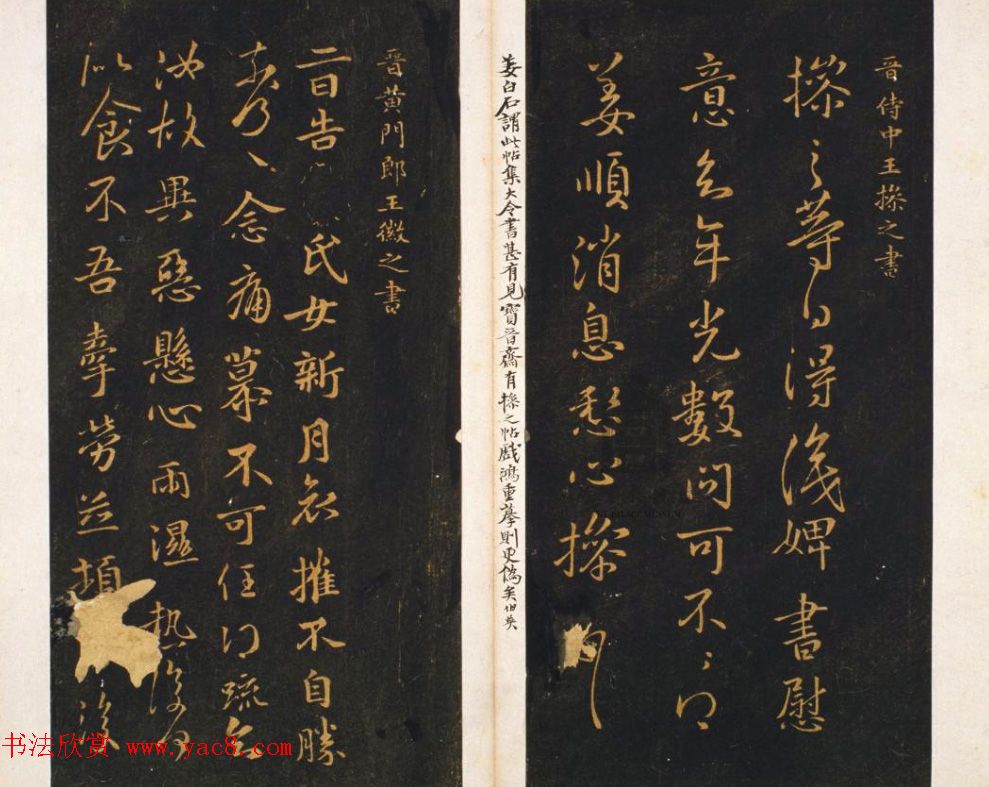 晉侍中王操之書
操之等白得識婢書慰
意去年光數問可不〻得
姜順消息愁心操
姜白石謂此帖集大令書甚有見寶晉齋有操之帖戲鴻重摹則更僞矣伯英
晉黃門郎王徽之書
二日告氏女新月哀摧不自勝
奈何〻念痛慕不可任得疏知
汝故異惡懸心雨濕熱復何
似食不吾牽勞並頓
www.yac8.com 书法欣赏